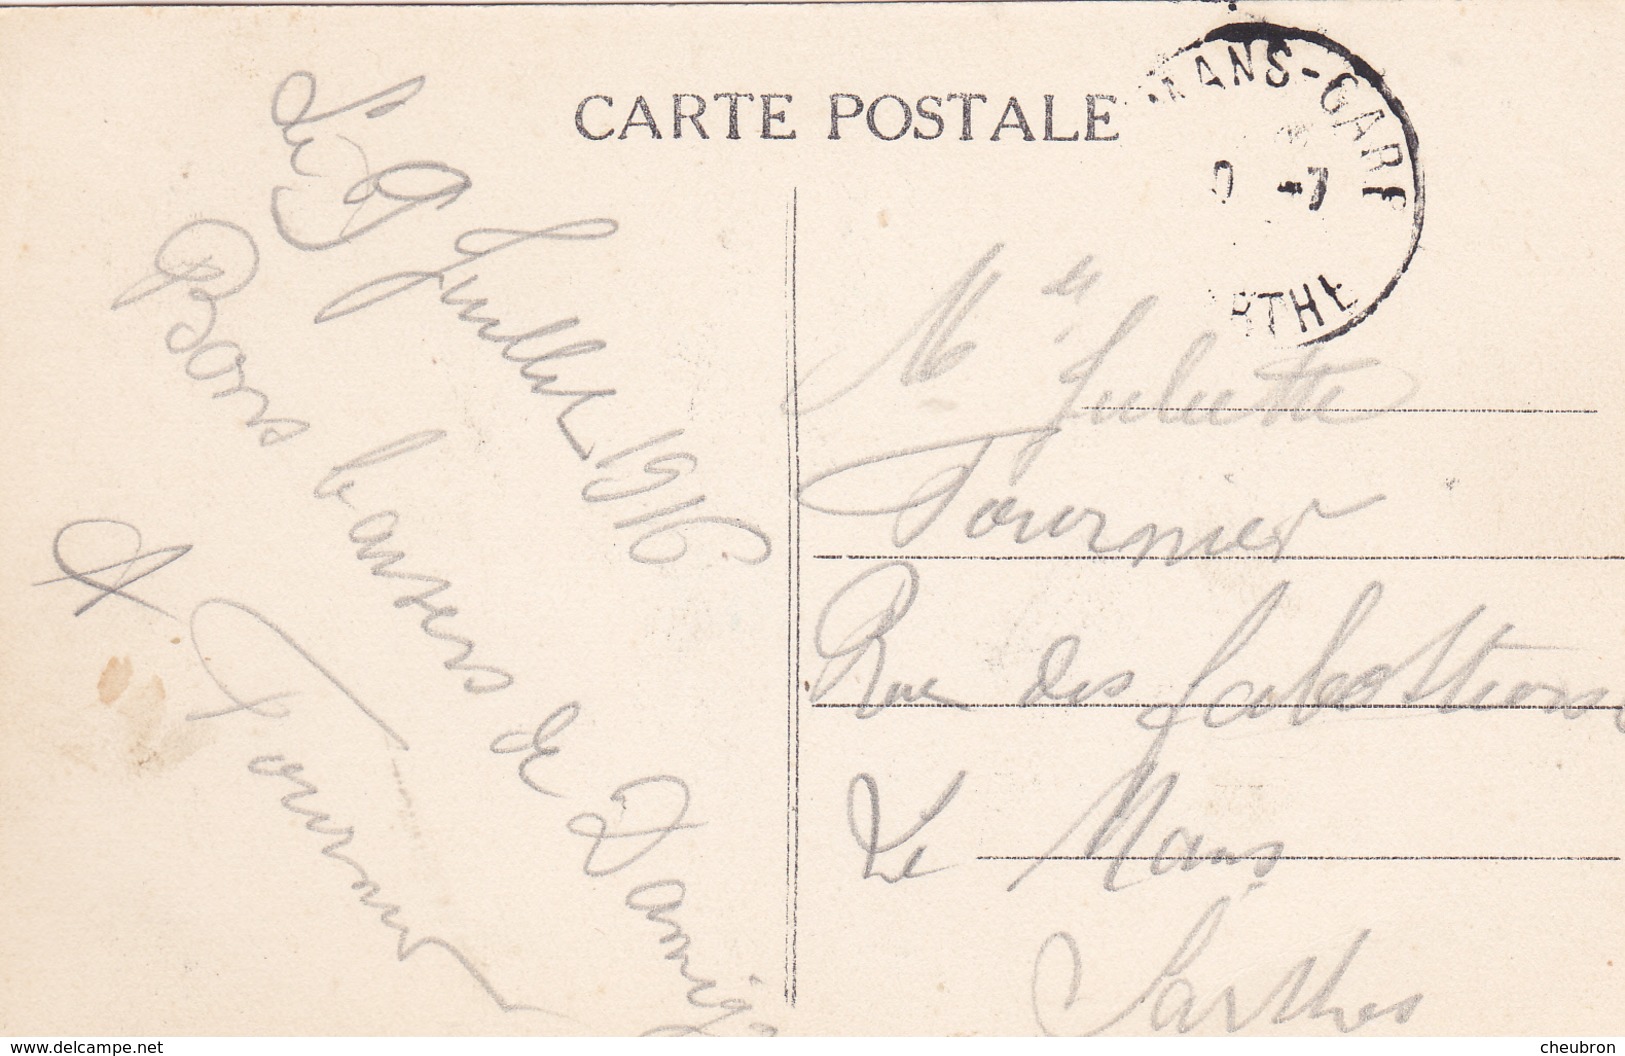 CARTE POSTALE
MANS-GARE
-7
RTHE
Le 9 Juillet 1916
Bons baisers de
A Fournier
Melle Juliette
Fournier
Rue des Sablonnières
Le Mans
Sarthe
delcampe.net
cheubron